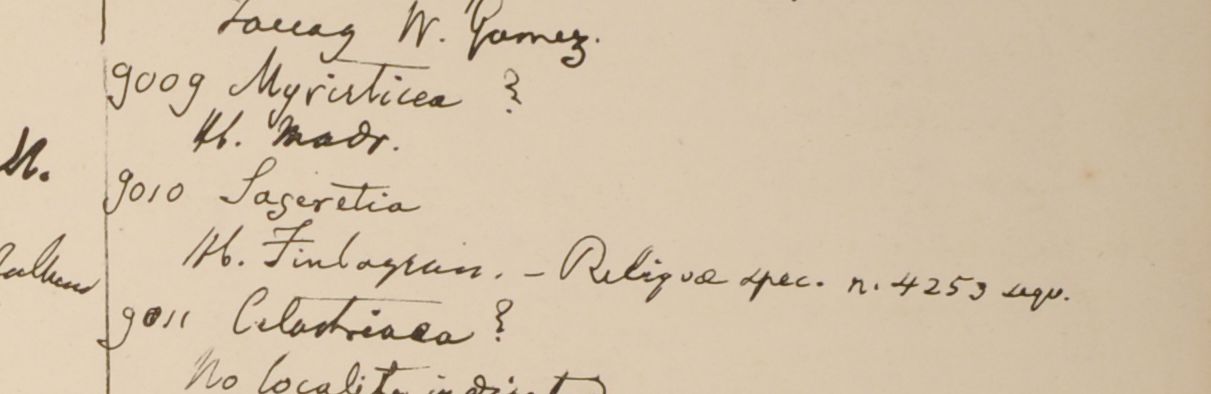 Tavoy W. Gomez.
9009 Myristicea ?
Hb. Madr.
9010 Sageretia
Hb. Finlaysun. – Reliquæ spec. n. 4253 sequ.
9011 Celastrinea ?
No locality indicat